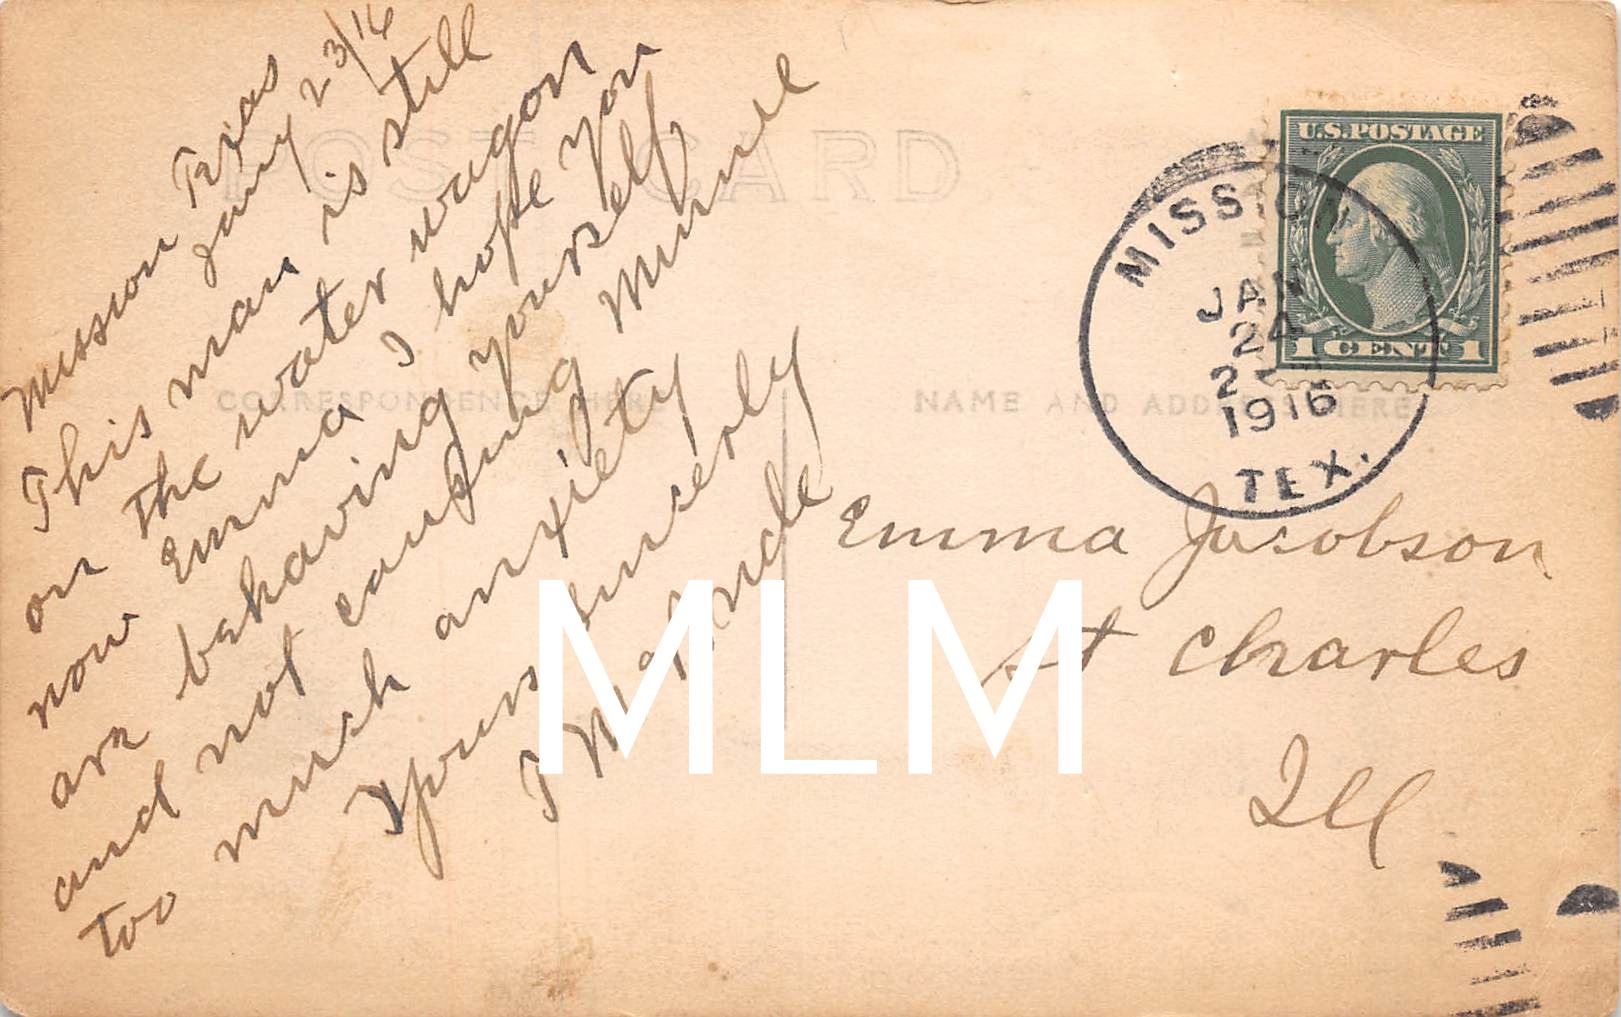 POST CARD
Mission Texas
Jany 23/16
This man is still
on the water wagon
now Emma I hope you
are behaving yourself
and not causing Minnie
too much anxiety
Yours sincerly
CORRESPONDENCE HERE
NAME AND ADDRESS HERE
U.S. POSTAGE
1 CENT 1
MISSION
JAN
24
2
1916
TEX.
Emma Jacobson
St Charles
Ill
MLM